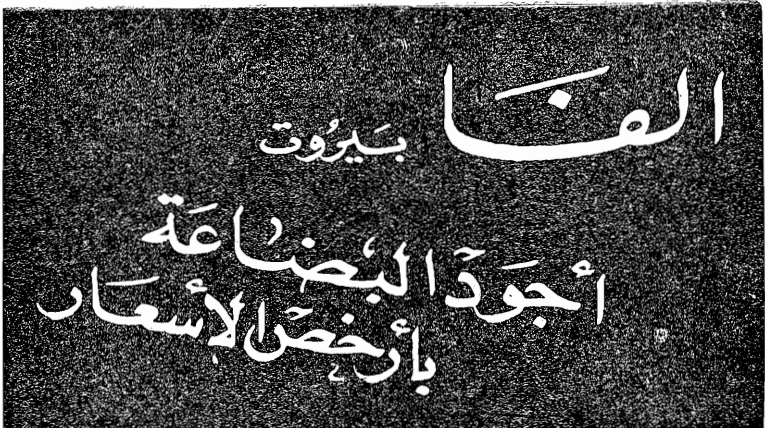 الفَنا بَيرُوت
أجوَدُ البُضَاعَة
بأرخصُ الأسعَار